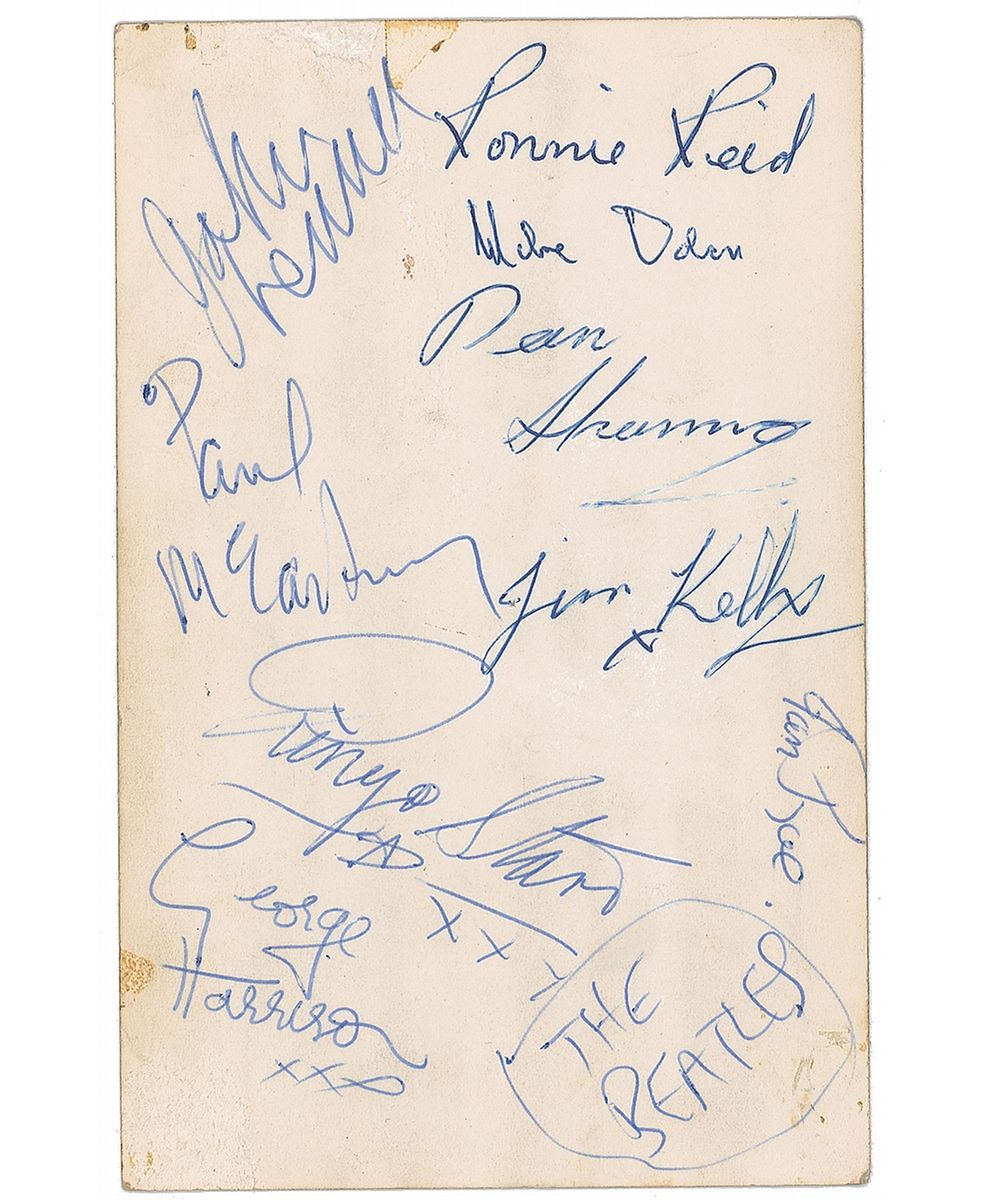 John
Lennon
Lonnie Reid
Mike
Dean
Paul
McCartney
Jim Kelly
x
Ringo
Starr
x x x
George
Harrison
xxx
THE
BEATLES